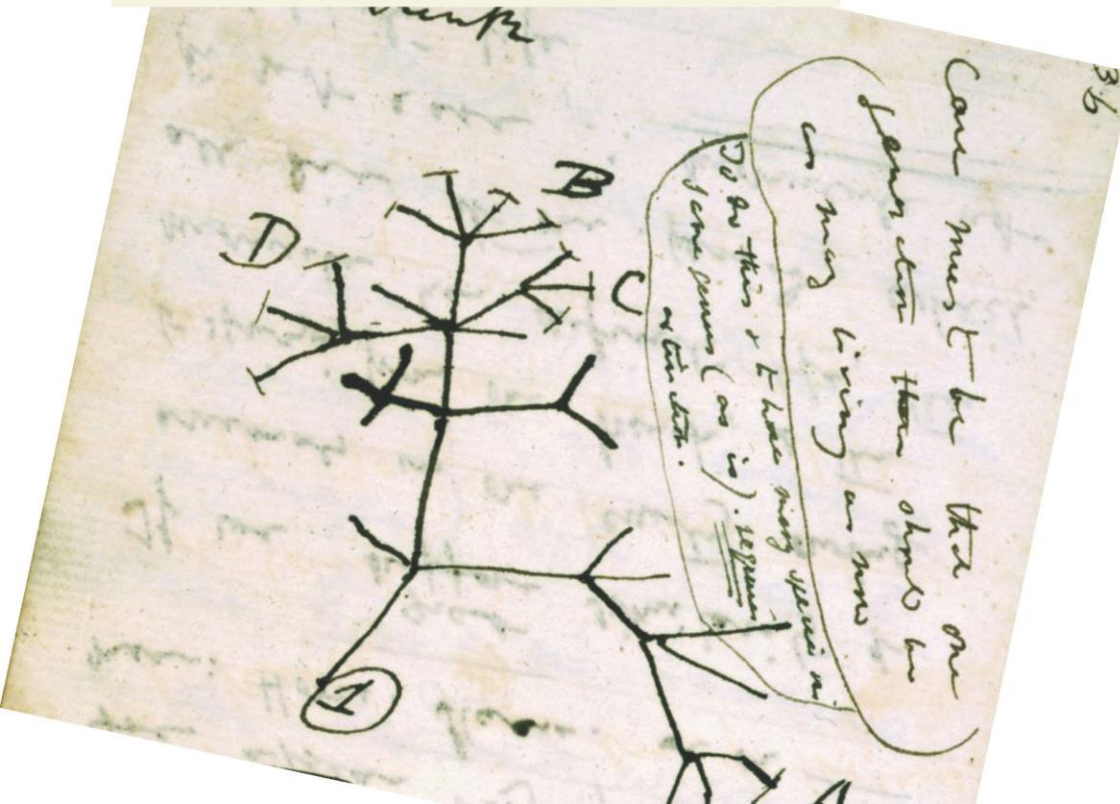 36
Case must be that one
generation then should be
as many living as now
To do this & to have many species in
same genus (as is). requires
extinction.
B
C
D
1